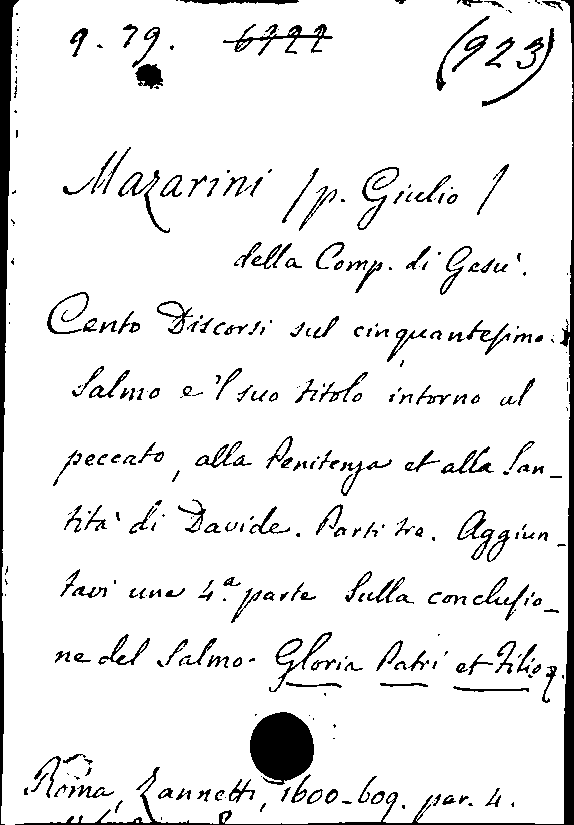 9.79. 6722 (923)
Mazarini /p. Giulio/
della Comp. di Gesu'.
Cento Discorsi sul cinquantesimo
Salmo e'l suo titolo intorno al
peccato, alla Penitenza et alla San-
tità di Davide. Parti tre. Aggiun-
tavi una 4.a parte Sulla conclusio-
ne del Salmo. Gloria Patri et Filio
Roma, Zannetti, 1600-609. par. 4.